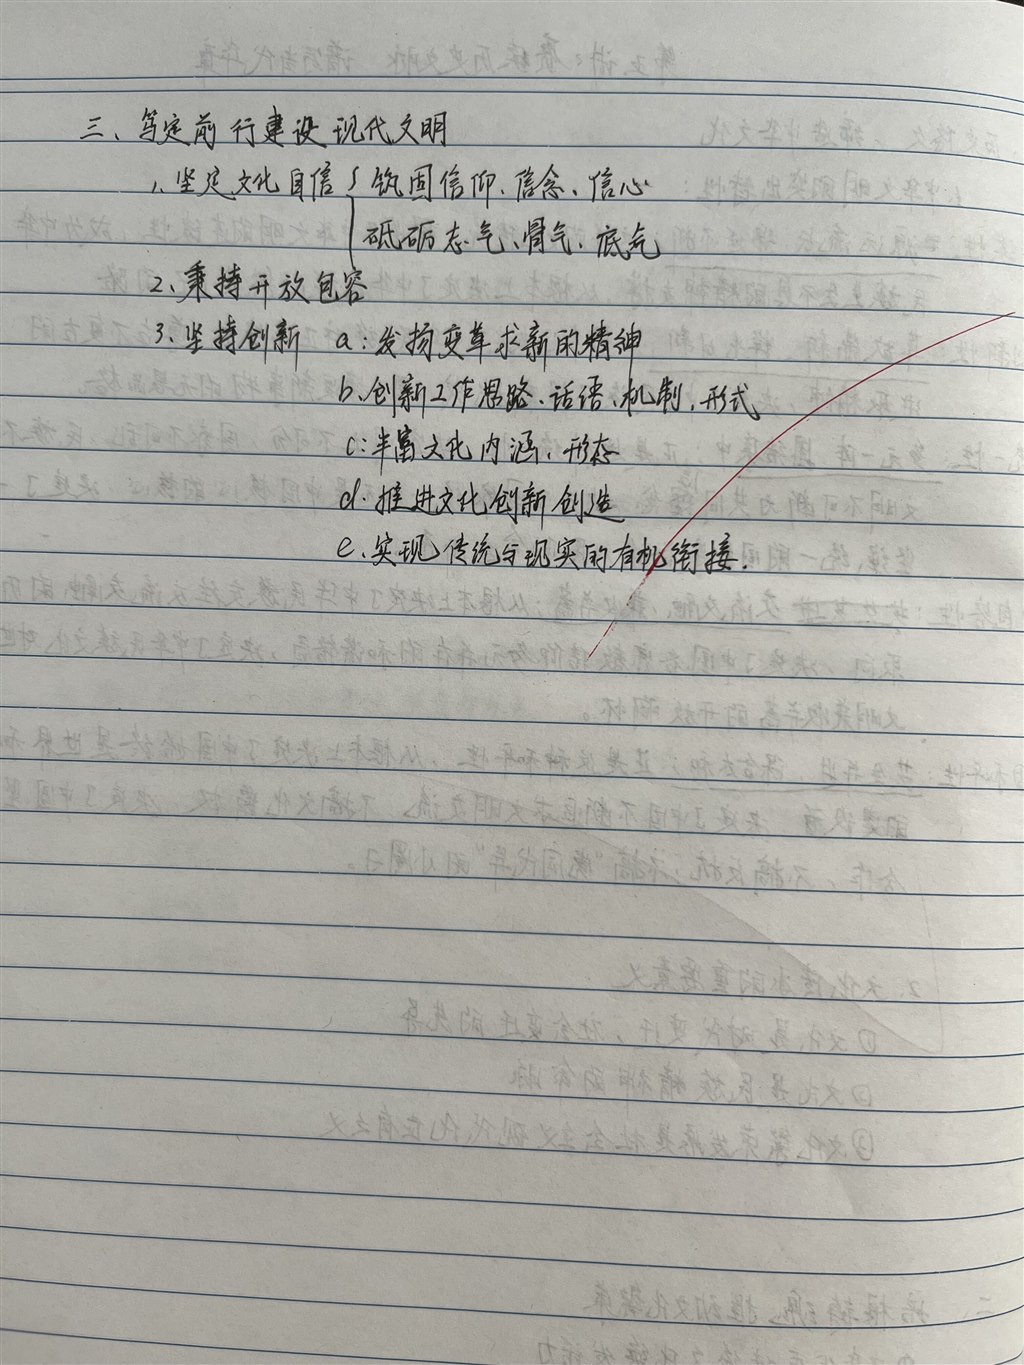 三、笃定前行建设现代文明
1、坚定文化自信{筑固信仰、信念、信心
砥砺志气、骨气、底气
2、秉持开放包容
3、坚持创新 a:发扬变革求新的精神
b、创新工作思路、话语、机制、形式
c:丰富文化内涵、形态
d.推进文化创新创造
e.实现传统与现实的有机衔接.